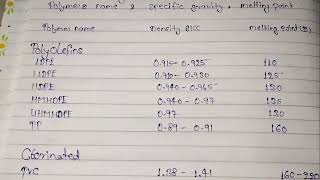 Polymers name & specific gravity, melting point
Polymer name Density g/cc melting point(°C)
Polyolefins
LDPE 0.915- 0.925 110
LLDPE 0.910- 0.930 125
HDPE 0.940- 0.965 130
HMHDPE 0.940 -0.97 135
UHMHDPE 0.97 130
PP 0.89 - 0.91 160
PVC 1.38 - 1.41